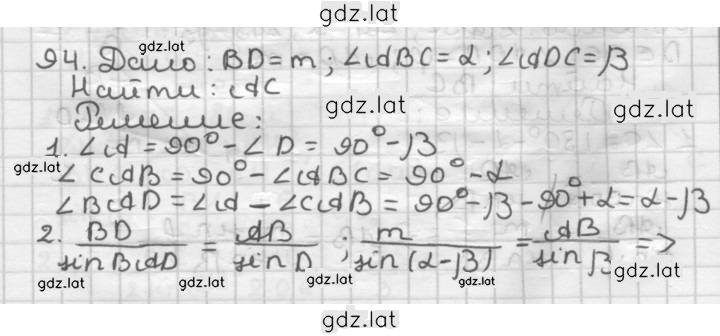 gdz.lat
94. Дано: BD = m; ∠ABC = α; ∠ADC = β
gdz.lat
Найти: AC
gdz.lat
gdz.lat
Решение:
1. ∠A = 90° - ∠D = 90° - β
gdz.lat
∠CAB = 90° - ∠ABC = 90° - α
gdz.lat
gdz.lat
∠BAD = ∠A - ∠CAB = 90° - β - 90° + α = α - β
2. BD/sin BAD = AB/sin D ; m/sin(α-β) = AB/sin β =>
gdz.lat
gdz.lat
gdz.lat
gdz.lat
gdz.lat